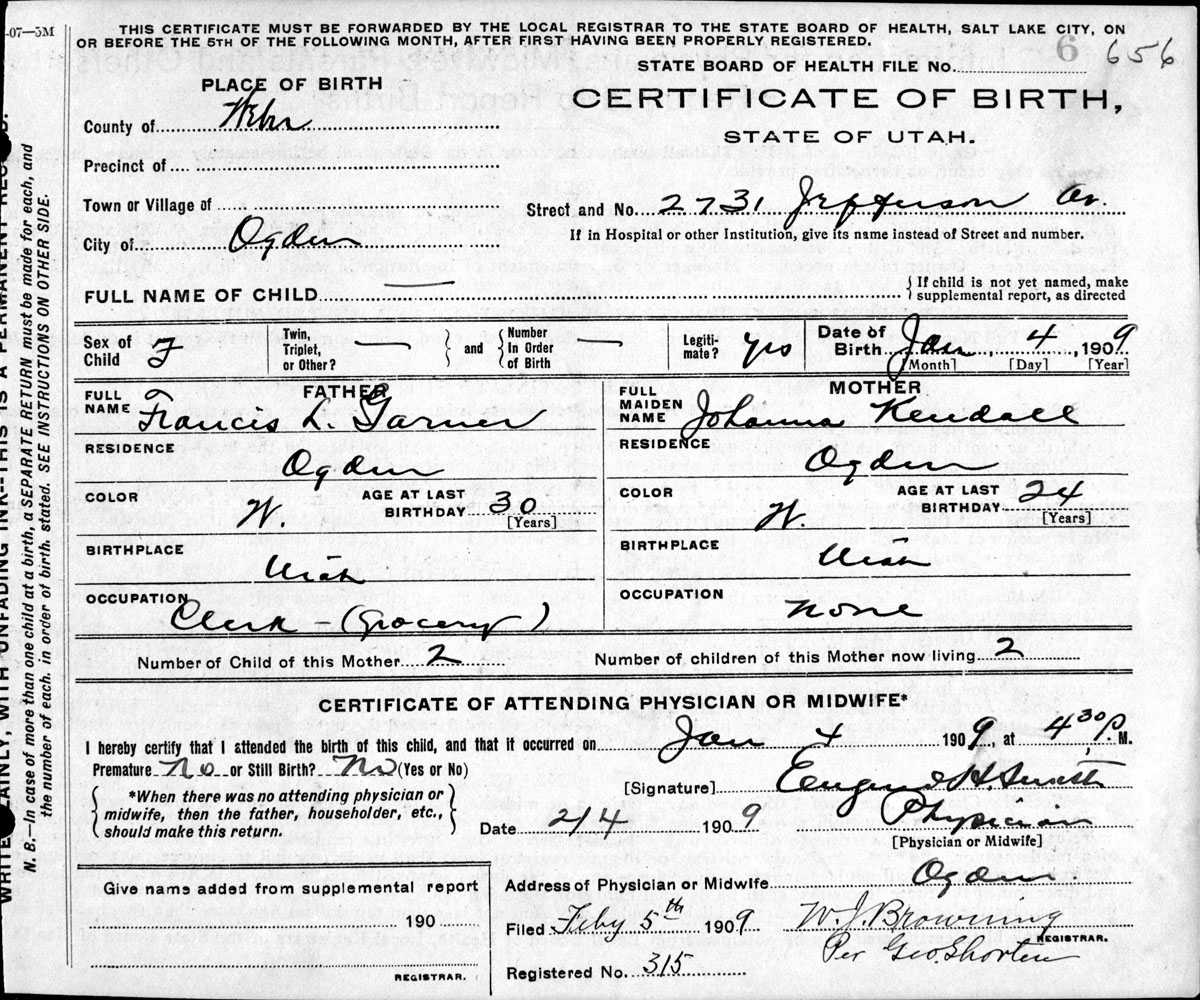 -07-5M
THIS CERTIFICATE MUST BE FORWARDED BY THE LOCAL REGISTRAR TO THE STATE BOARD OF HEALTH, SALT LAKE CITY, ON
OR BEFORE THE 5TH OF THE FOLLOWING MONTH, AFTER FIRST HAVING BEEN PROPERLY REGISTERED.
STATE BOARD OF HEALTH FILE No. 6 656
PLACE OF BIRTH
CERTIFICATE OF BIRTH,
STATE OF UTAH.
County of Weber
Precinct of
Town or Village of
Street and No. 2731 Jefferson Av.
City of Ogden
If in Hospital or other Institution, give its name instead of Street and number.
FULL NAME OF CHILD —
{If child is not yet named, make
supplemental report, as directed
Sex of Child F
Twin, Triplet, or Other? —
} and { Number In Order of Birth —
Legiti-mate? yes
Date of Birth Jan 4, 1909
[Month] [Day] [Year]
FATHER
FULL NAME Francis L. Garner
MOTHER
FULL MAIDEN NAME Johanna Kendall
RESIDENCE Ogden
RESIDENCE Ogden
COLOR W.
AGE AT LAST BIRTHDAY 30
[Years]
COLOR W.
AGE AT LAST BIRTHDAY 24
[Years]
BIRTHPLACE Utah
BIRTHPLACE Utah
OCCUPATION Clerk - (Grocery)
OCCUPATION None
Number of Child of this Mother 2
Number of children of this Mother now living 2
CERTIFICATE OF ATTENDING PHYSICIAN OR MIDWIFE*
I hereby certify that I attended the birth of this child, and that it occurred on Jan 4 1909, at 4 30 P. M.
Premature No or Still Birth? No (Yes or No)
[Signature] Eugene H. Smith
{*When there was no attending physician or
midwife, then the father, householder, etc.,
should make this return.}
Date 2/4 1909
Physician
[Physician or Midwife]
Give name added from supplemental report
190
REGISTRAR.
Address of Physician or Midwife Ogden
Filed Feby 5th 1909
W. J. Browning
REGISTRAR.
Per Geo. Shorten
Registered No. 315
WRITE PLAINLY, WITH UNFADING INK--THIS IS A PERMANENT
N. B.—In case of more than one child at a birth, a SEPARATE RETURN must be made for each, and
the number of each, in order of birth, stated. SEE INSTRUCTIONS ON OTHER SIDE.